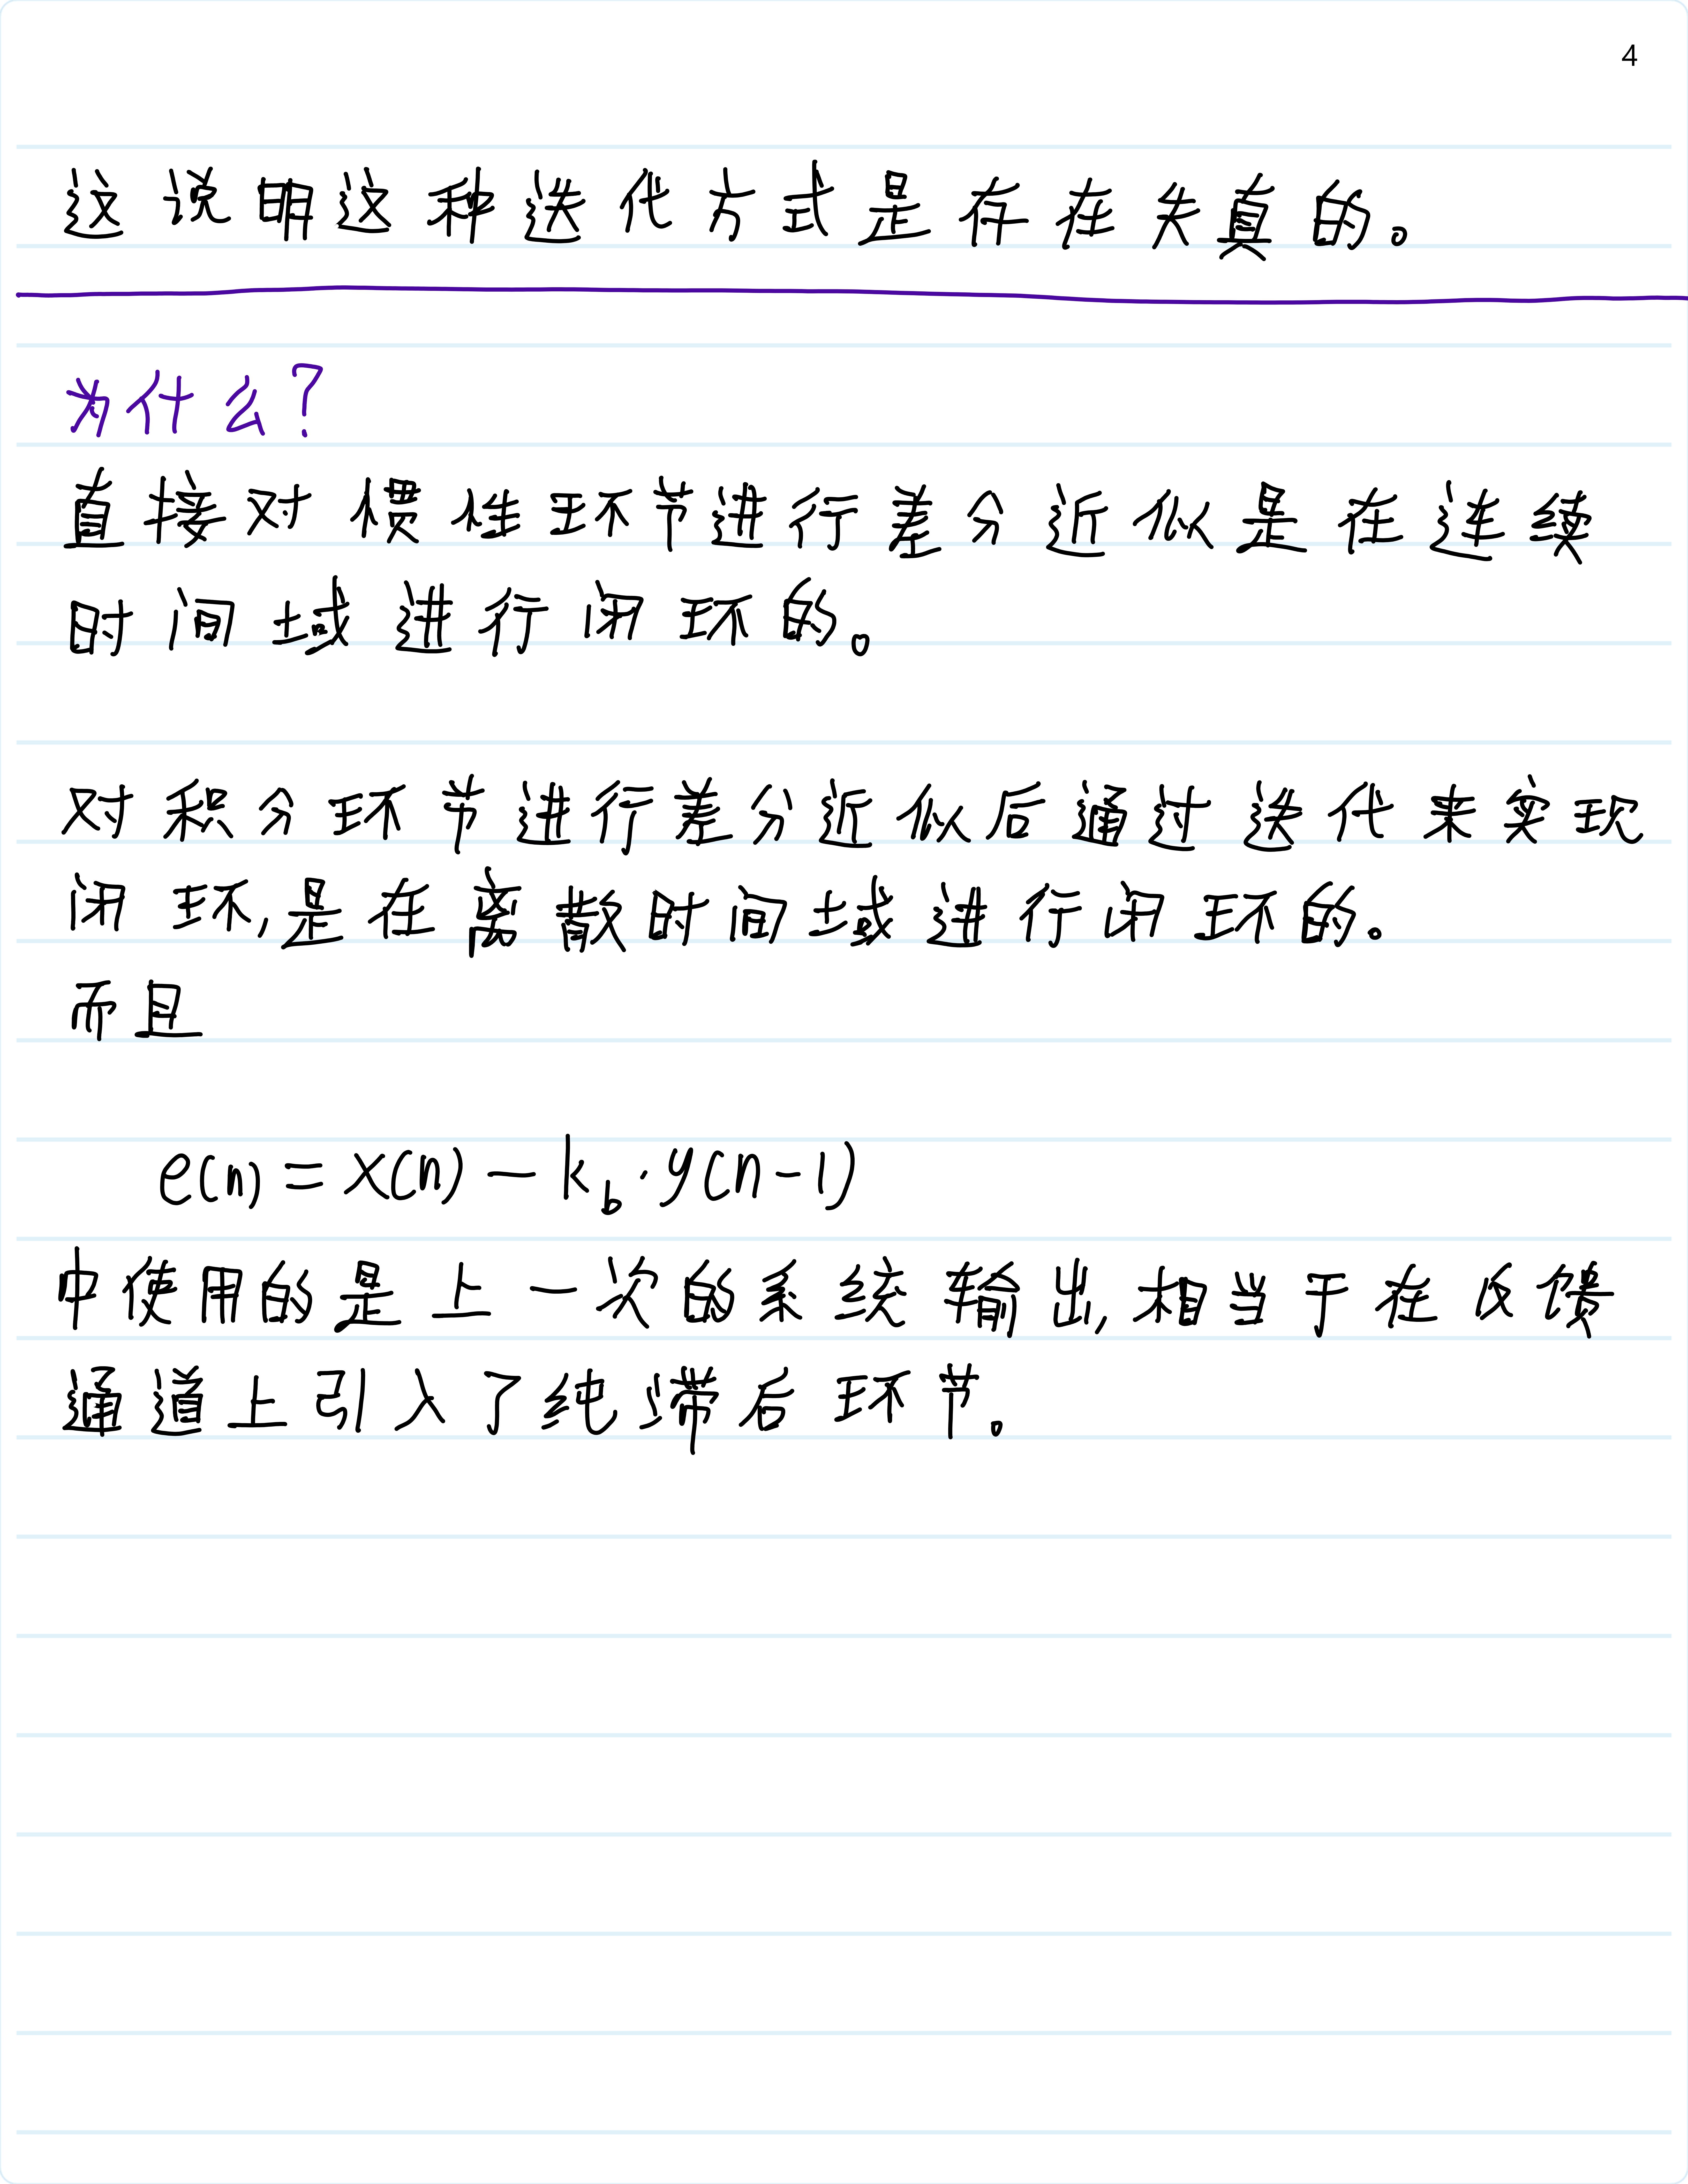 4
这说明这种迭代方式是存在失真的。
为什么?
直接对惯性环节进行差分近似是在连续
时间域进行闭环的。
对积分环节进行差分近似后通过迭代来实现
闭环,是在离散时间域进行闭环的。
而且
e(n)=x(n)-k_b·y(n-1)
中使用的是上一次的系统输出,相当于在反馈
通道上引入了纯滞后环节。